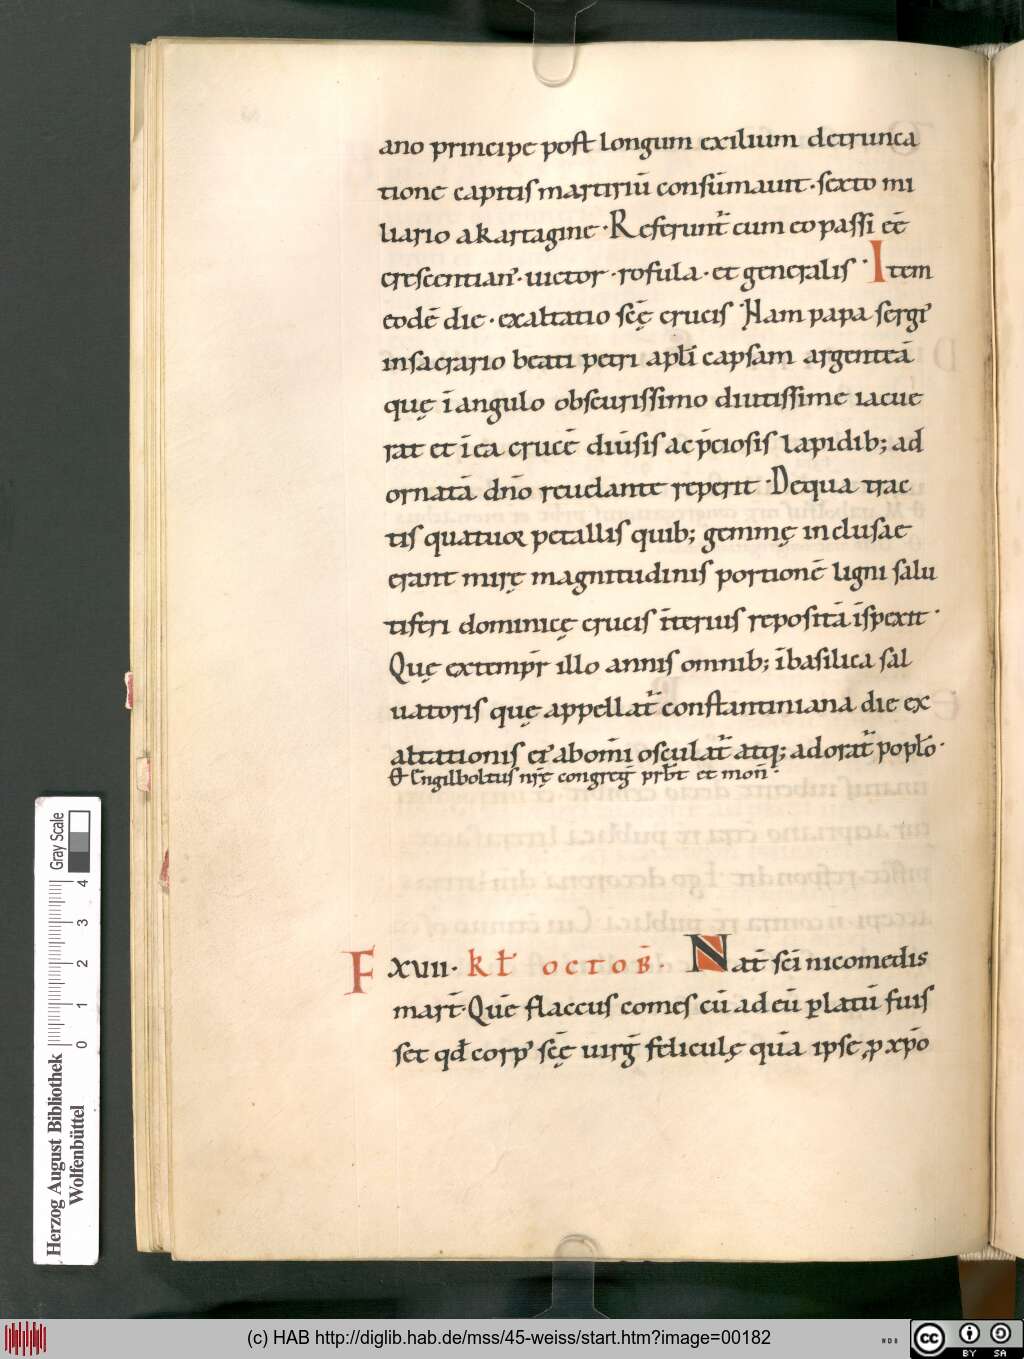 ano principe post longum exilium detrunca
tione capitis martiriū consūmauit · sexto mi
liario a kartagine · Referunt̄ cum eo passi eē
crescentian' · uictor · rosula · et generalis · Item
eodē die · exaltatio scę̄ crucis · Nam papa sergi'
in sacrario beati petri apli̅ capsam argenteā
quę ī angulo obscurissimo diutissime iacue
rat et ī ea crucē diūsis ac p̄ciosis lapidib; ad
ornatā dn̄o reuelante reperit · De qua trac
tis quatuor petallis quib; gemmę inclusae
erant mirę magnitudinis portionē ligni salu
tiferi dominicę crucis īterius repositā īspexit ·
Quę ex tempr̄ illo annis omnib; ī basilica sal
uatoris quę appellat̄ constantiniana die ex
altationis ei' ab om̄i osculat̄ atq; adorat̄ poplo̅ ·
& Engilboltus nr̄ę congreg̅ prb̄t et mon̄ ·
F XVII · kł octob̄ · Nat̄ sc̄i nicomedis
mart̄ · Quē flaccus comes cū ad eū ꝑlatū fuis
set qđ corp' scę̄ uirg̅ feliculę quā ipse ꝓ xp̄o
Gray Scale
0 1 2 3 4
Herzog August Bibliothek
Wolfenbüttel
(c) HAB http://diglib.hab.de/mss/45-weiss/start.htm?image=00182
WDB
cc BY SA